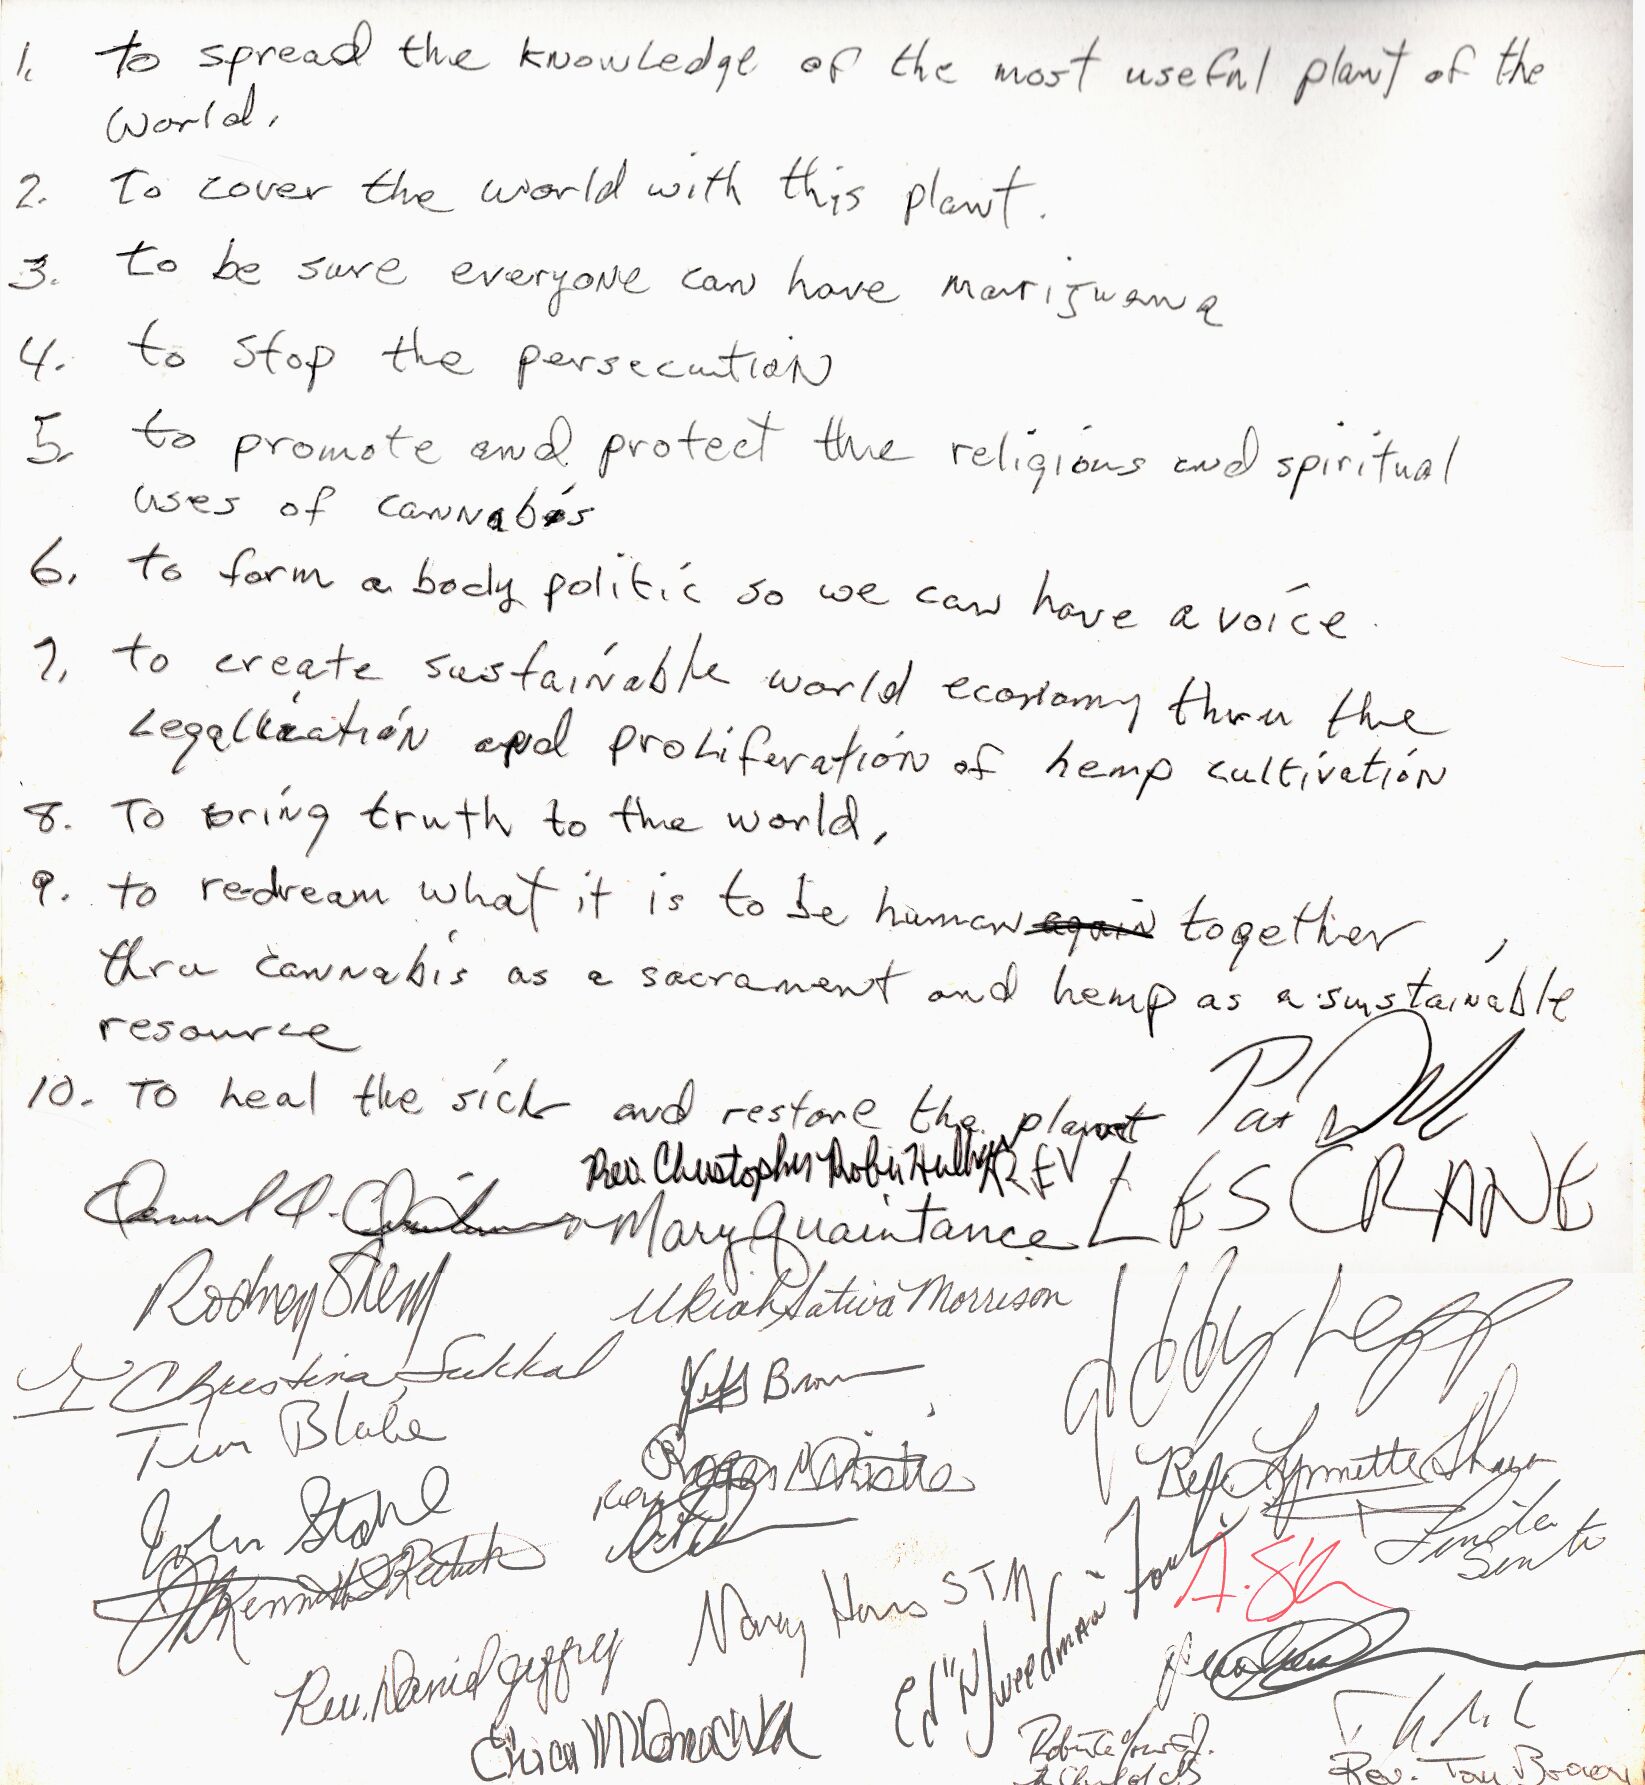 1. to spread the knowledge of the most useful plant of the
world.
2. To cover the world with this plant.
3. to be sure everyone can have marijuana
4. to stop the persecution
5. to promote and protect the religious and spiritual
uses of cannabis
6. to form a body politic so we can have a voice.
7. to create sustainable world economy thru the
Legalization and proliferation of hemp cultivation
8. To bring truth to the world,
9. to re-dream what it is to be human again together,
thru cannabis as a sacrament and hemp as a sustainable
resource
10. To heal the sick and restore the planet
Pat
Rev. Christopher Robin
REV LES CRANE
Mary Quaintance
Rodney
Ukiah Sativa Morrison
Eddy Lepp
Christina Sukkal
Jeff Brown
Tim Blake
Rev. Lynnette Shaw
Rev Roger Christie
John Stahl
Linda Senti
Kenneth
Nancy
Ed "NJWeedman"
Rev. David Jeffrey
Erica
Rev. Tom Brown